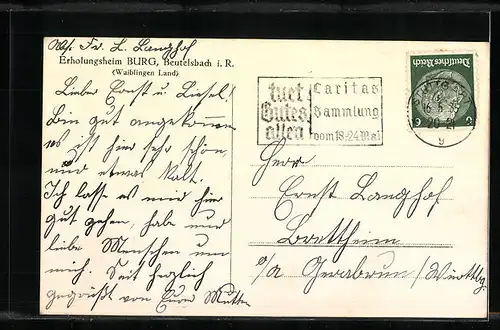 Abs. Fr. L. Langhof
Erholungsheim BURG, Beutelsbach i. R.
(Waiblingen Land)
Lieber Ernst u. Liesel!
Bin gut angekommen
es ist hier sehr schön
und etwas kalt.
Ich lasse es mir hier
gut gehen, habe auch
liebe Menschen um
mich. Seit herzlich
gegrüßt von Eurer Mutter
tuet
Gutes
allen!
Caritas
Sammlung
vom 18-24 Mai
Deutsches Reich
3 3
20-21
9
Herrn
Ernst Langhof
Brettheim
o/a Gerabrun/Württbg.